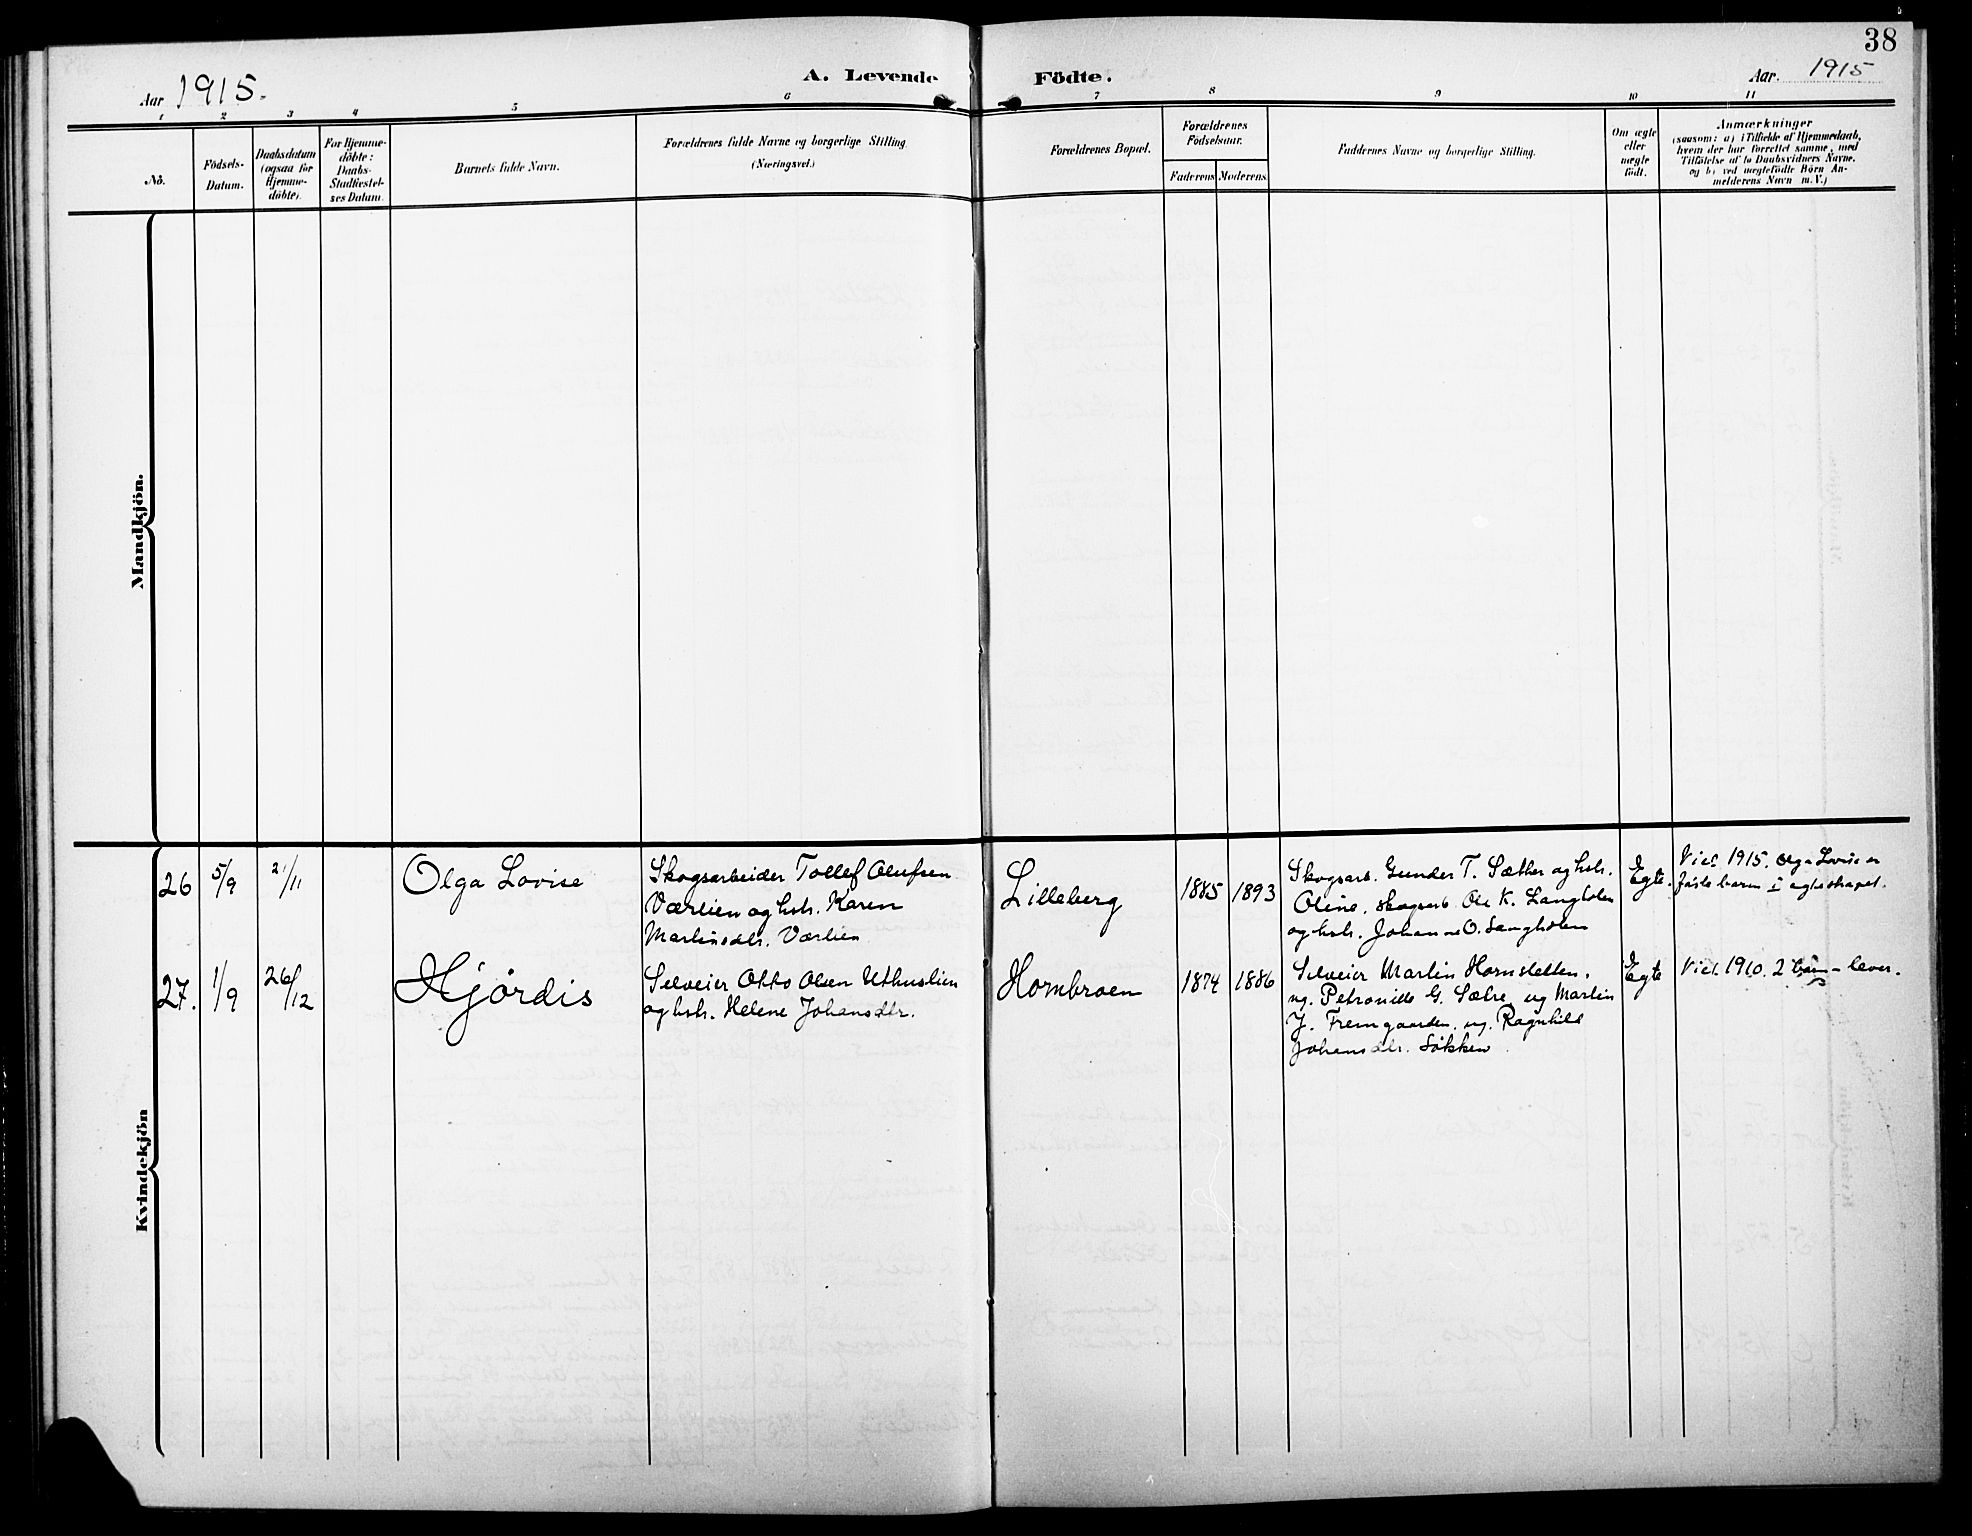 38
Aar 1915.
A. Levende Födte.
Aar. 1915
1 2 3 4 5 6 7 8 9 10 11
No.
Födsels-
Datum.
Daabsdatum
(ogsaa for
Hjemme-
döbte).
For Hjemme-
döbte:
Daabs-
Stadfæstel-
ses Datum.
Barnets fulde Navn.
Forældrenes fulde Navne og borgerlige Stilling.
(Næringsvei.)
Forældrenes Bopæl.
Forældrenes
Födselsaar.
Faderens Moderens
Faddernes Navne og borgerlige Stilling.
Om ægte
eller
uægte
födt.
Anmærkninger
(saasom: a) i Tilfælde af Hjemmedaab,
hvem der har forrettet samme, med
Tilföielse af to Daabsvidners Navne.
og b) ved uægtefödte Börn An-
melderens Navn m. V.)
Mandkjön.
Kvindekjön
26
5/9
21/11
Olga Lovise
Skogsarbeider Tollef Olufsen
Værlien og hstr. Karen
Martinsdtr. Værlien
Lilleberg
1885
1893
Skogsarb. Gunder T. Sæther og hstr.
Oline, skogsarb Ole K. Langholen
og hstr. Johanne O. Langholen
Egte.
Viet 1915. Olga Lovise er
første barn i egteskapet.
27.
1/9
26/12
Hjördis
Selveier Otto Olsen Uthuslien
og hstr. Helene Johansdtr.
Hornbroen
1874
1886
Selveier Martin Hornsletten,
ug. Petronille G. Sætre, ug Martin
J. Fremgaarden, ug. Ragnhild
Johansdtr. Søkken
Egte
Viet 1910. 2 barn lever.